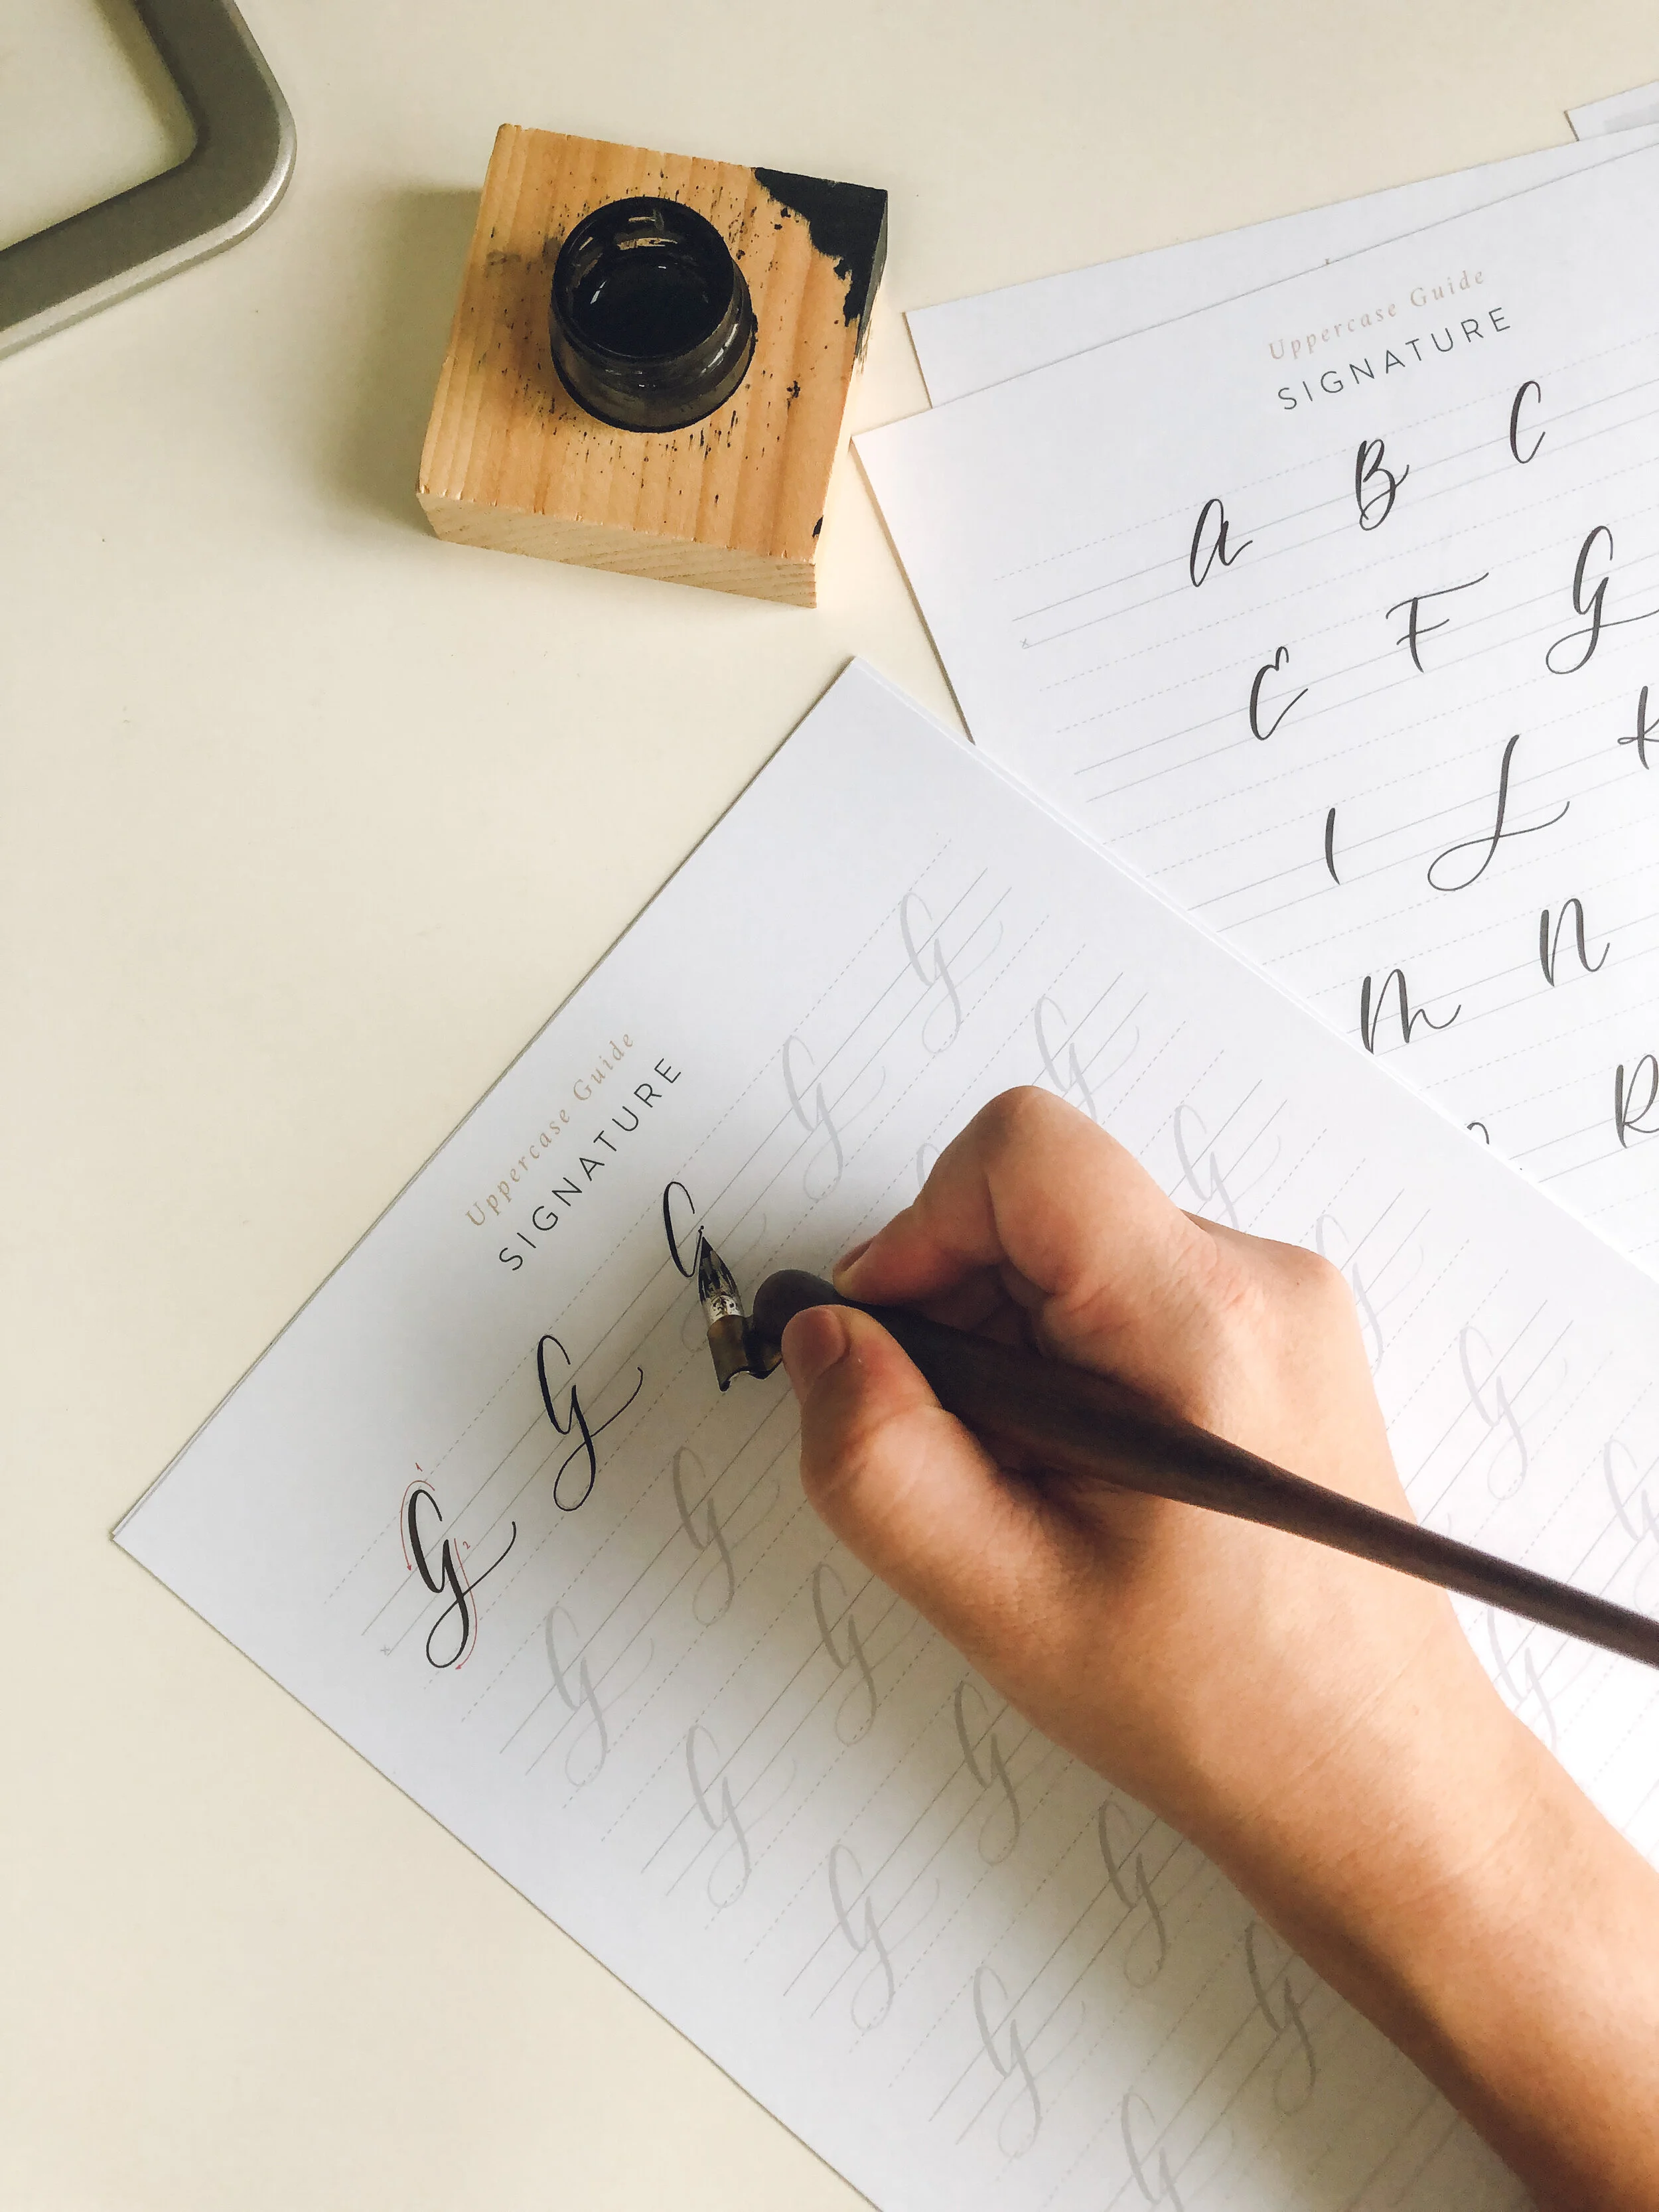 Uppercase Guide
SIGNATURE
A B C
E F G
I L K
M N
R
Uppercase Guide
SIGNATURE
G G G G
G G G
G G
G G G
G G G
G G G
G
1
2
x
x